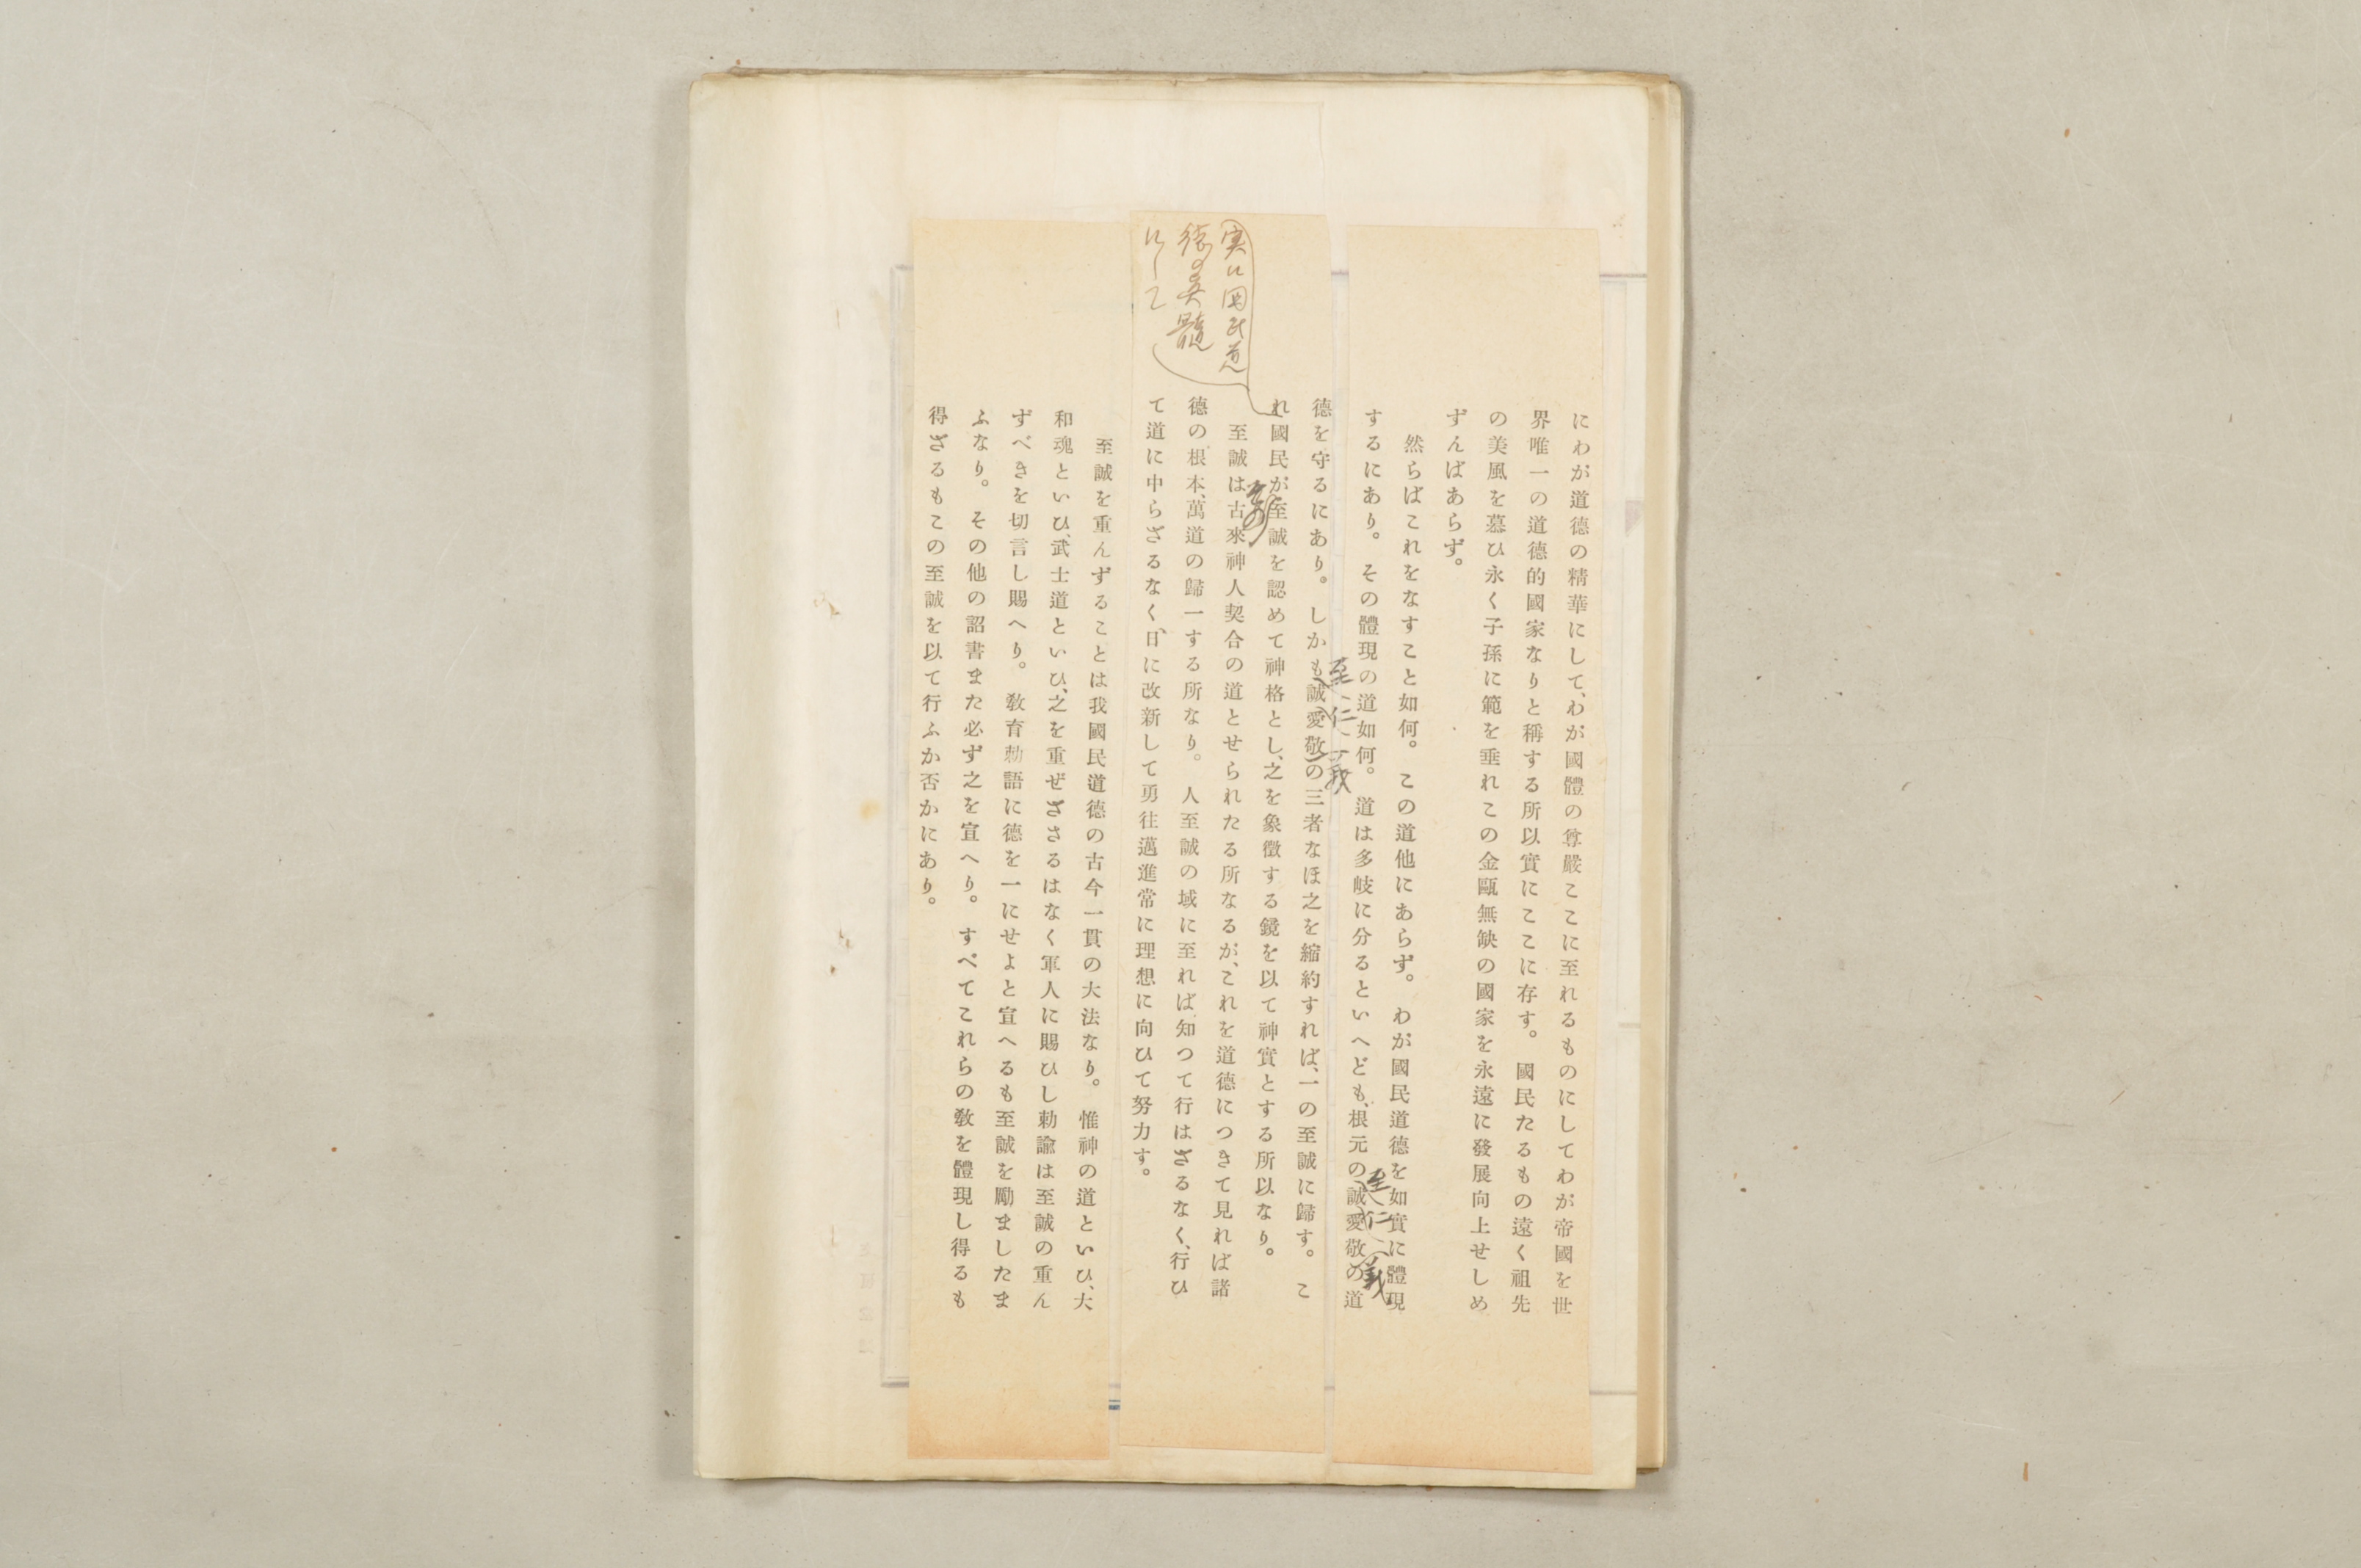 にわが道德の精華にして、わが國體の尊嚴ここに至れるものにしてわが帝國を世
界唯一の道德的國家なりと稱する所以實にここに存す。國民たるもの遠く祖先
の美風を慕ひ永く子孫に範を垂れこの金甌無缺の國家を永遠に發展向上せしめ
ずんばあらず。
然らばこれをなすこと如何。この道他にあらず。わが國民道德を如實に體現
するにあり。その體現の道如何。道は多岐に分るといへども、根元の誠愛敬の道
至仁義
德を守るにあり。しかも誠愛敬の三者なほ之を縮約すれば、一の至誠に歸す。こ
至仁義
れ國民が至誠を認めて神格とし、之を象徵する鏡を以て神實とする所以なり。
実に国民道
德の真髓
にして
至誠は古來神人契合の道とせられたる所なるが、これを道德につきて見れば諸
德の根本、萬道の歸一する所なり。人至誠の域に至れば、知つて行はざるなく、行ひ
て道に中らざるなく、日に改新して勇往邁進常に理想に向ひて努力す。
至誠を重んずることは我國民道德の古今一貫の大法なり。惟神の道といひ、大
和魂といひ、武士道といひ、之を重ぜざさるはなく軍人に賜ひし勅諭は至誠の重ん
ずべきを切言し賜へり。敎育勅語に德を一にせよと宣へるも至誠を勵ましたま
ふなり。その他の詔書また必ず之を宣へり。すべてこれらの敎を體現し得るも
得ざるもこの至誠を以て行ふか否かにあり。